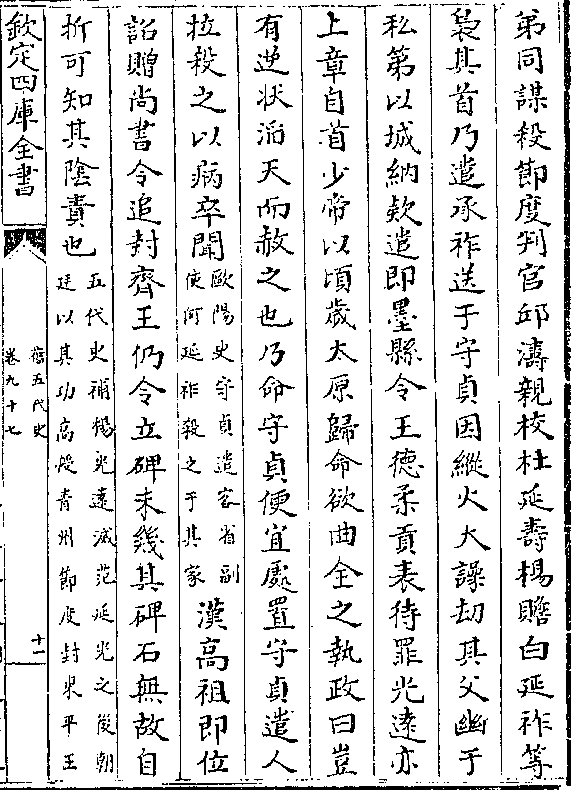 弟同謀殺節度判官邱濤親校杜延壽楊贍白延祚等
梟其首乃遣承祚送于守貞因縱火大譟劫其父幽于
私第以城納欵遣即墨縣令王德柔貢表待罪光遠亦
上章自首少帝以頃歲太原歸命欲曲全之執政曰豈
有逆状滔天而赦之也乃命守貞便宜處置守貞遣人
拉殺之以病卒聞歐陽史守貞遣客省副使何延祚殺之于其家漢高祖即位
詔贈尚書令追封齊王仍令立碑未幾其碑石無故自
折可知其陰責也五代史補楊光遠滅范延光之後朝廷以其功高授青州節度封東平王
欽定四庫全書
舊五代史
卷九十七
十一